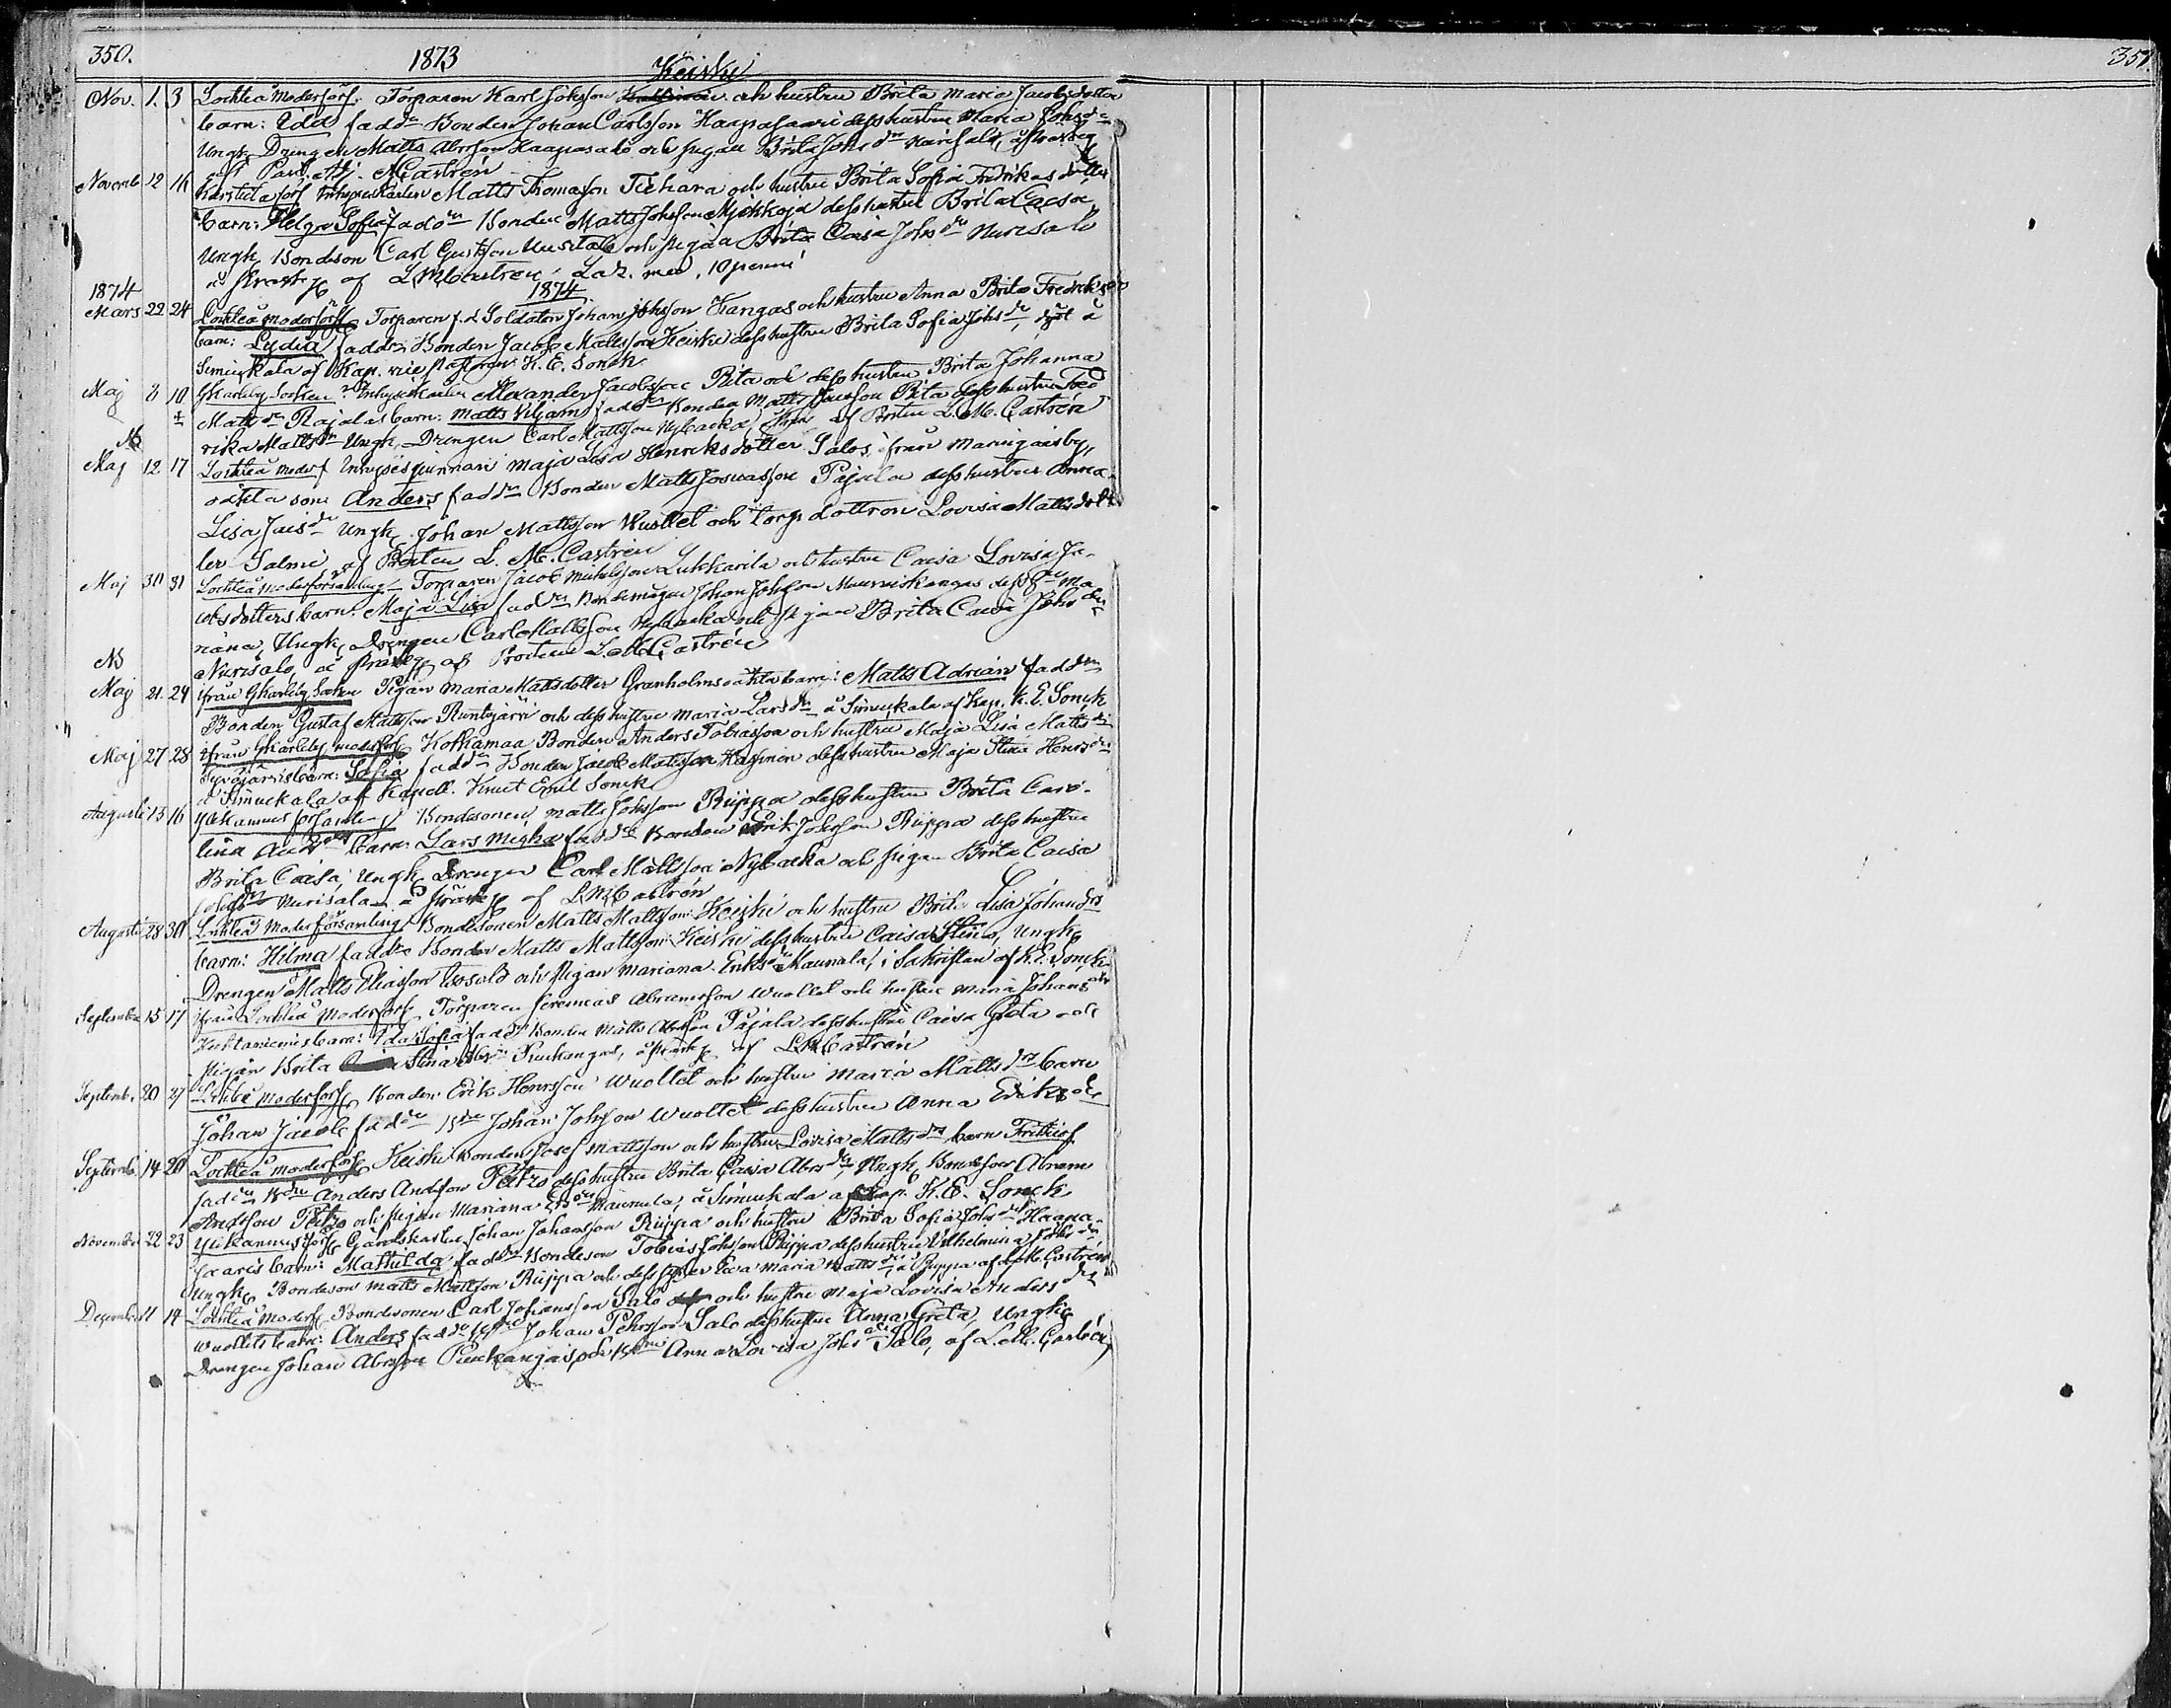 350. 1873 351.
Keisky
Nov. 1. 3 Lochteå Moderförs. Torparen Karl Johsson och hustru Brita Maria Jacobsdotter
barn: Ida fadd. Bonden Johan Carlsson Haapasaari dess hustru Maria Johsdr
Ungk. Drengen Matts Abrsson Haapasalo och pigan Brita Johsdr Nurisalo, å prostg
af Past. Adj. Castrén
Novemb. 12 16 Karstula förs. Inhyseskarlen Matts Thomasson Tiehara och hustru Brita Sofia Fredriksdotter
barn: Helga Sofia fadd. Bonden Matts Johsson dess hustru Brita Caisa
Ungk. Bondeson Carl Gustsson Uusitalo och pigan Brita Caisa Johsdr Nurisalo
å prostg af L M Castrén. Laz. med. 10 penni
1874 1874
Mars 22 24 Lochteå Moderförs. Torparen f.d. Soldaten Johan Johsson Kangas och hustru Anna Brita Fredriksdr
barn: Lydia fadd. Bonden Jacob Mattsson Keiski dess hustru Brita Sofia Johsdr, döpt å
Simuskala af Kap. vice pastoren K. E. Sonck
Maj 8 10 Gkarleby Socken Inhyseskarlen Alexander Jacobsson Pita och dess hustru Brita Johanna
Mattsdr Rajalas barn: Matts Viljam fadd. Bonden Matts Pita dess hustru Fred
rika Mattsdr Ungk. Drengen Carl Mattsson Nybacka af Prosten L. M. Castrén
No
Maj 12 17 Lochteå Moderf. Inhysesqvinnan Maja Lisa Henriksdotter Salos från Maringaisby,
oäkta son Anders fadd. Bonden Matts Josuasson Pajala dess hustru Anna
Lisa Jacsdr Ungk. Johan Mattsson Wuollet och torp. dottren Lovisa Mattsdot
ter Salmi, af Prosten L. M. Castrén
Maj 30 31 Lochteå Moderförsamling Torparen Jacob Michelsson Lukkarila och hustru Caisa Lovisa Ja-
cobsdotters barn: Maja Lisa fadd. Bondemågen Johan Johsson Muurriskangas dess hu Ma
riana, Ungk. Drengen Carl Mattsson Nybacka och pigan Brita Caisa Johsdr
Nurisalo, å prostg af Prosten L. M. Castrén
NB
Maj 21. 24 ifrån Gkarleby Socken Pigan Maria Mattsdotter Granholms oäkta barn: Matts Adrian fadd.
Bonden Gustaf Mattsson Runtujärvi och dess hustru Maria Larsdr å Simuskala af Kap. K. E. Sonck
Maj 27 28 ifrån Gkarleby moderförs. Kotkamaa Bonden Anders Tobiasson och hustru Maja Lisa Mattsdr
Syväjärvis barn: Sofia fadd. Bonden Jacob Mattsson Kasinen dess hustru Maja Stina Henrsdr
å Simuskala af Kapell. Knut Emil Sonck
Augusti 13 16 Ylikannus församling Bondesonen Matts Johsson Riippa dess hustru Brita Caro-
lina Andrsdrs barn: Lars Micka fadd. Bonden Erik Johsson Riippa dess hustru
Brita Caisa, Ungk. Drengen Carl Mattsson Nybacka och pigan Brita Caisa
Johsdr Nurisalo å prostg af L M Castrén
Augusti 28 30 Lochteå Moderförsamling Bondesonen Matts Mattsson Keiski och hustru Brita Lisa Johansdrs
barn: Hilma fadd. Bonden Matts Mattsson Keiski dess hustru Caisa Stina, Ungk.
Drengen Matts Eliasson och pigan Mariana Eriksdr Maunula, i Sakristian af K. E. Sonck
September 15 17 ifrån Lochteå Moderförs. Torparen Jeremias Abramsson Wuollet och hustru Maria Johansdr
barn: Ida Sofia fadd. Bonden Matts Abrsson Pajala dess hustru Caisa Greta och
pigan Brita Stina Abrsdr Piuskangas, å prostg af L M Castrén
Septemb. 20 27 Lochteå Moderförs. Bonden Erik Henrsson Wuollet och hustru Maria Mattsdrs barn
Johan Jacob fadd. Bden Johan Johsson Wuollet dess hustru Anna Eriksdr
Septemb. 14 20 Lochteå Moderförs. Keiski Bonden Josef Mattsson och hustru Lovisa Mattsdrs barn Frithiof
fadd. Bden Anders Andsson Petzo dess hustru Brita Caisa Abrsdr, Ungk. Bondeson Abram
Andsson Petzo och pigan Mariana Ersdr Maunula, å Simuskala af Kap. K. E. Sonck
November 22 23 Ylikannus förs. Gårdskarlen Johan Johansson Riippa och hustru Brita Sofia Johsdr Haapa-
saaris barn: Mathilda fadd. Bondeson Tobias Johsson Riippa dess hustru Vilhelmina Johsdr
Ungk. Bondeson Matts Mattsson Riippa och dess syster Eva Maria Mattsdr, å Riippa af L. M. Castrén
December 11 14 Lochteå Moderf. Bondesonen Carl Johansson Salo och hustru Maja Lovisa Andersdr
Wuollets barn: Anders fadd. Bden Johan Pehrsson Salo dess hustru Anna Greta, Ungk.
Drengen Johan Abrsson Piuskangas och Anna Lovisa Johsdr Salo, af L. M. Castrén